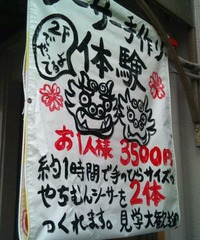 シーサー手作り
2Fでやってるよ
体験
お1人様 3500円
約1時間で手のひらサイズの
やちむんシーサーを2体
つくれます。見学大歓迎